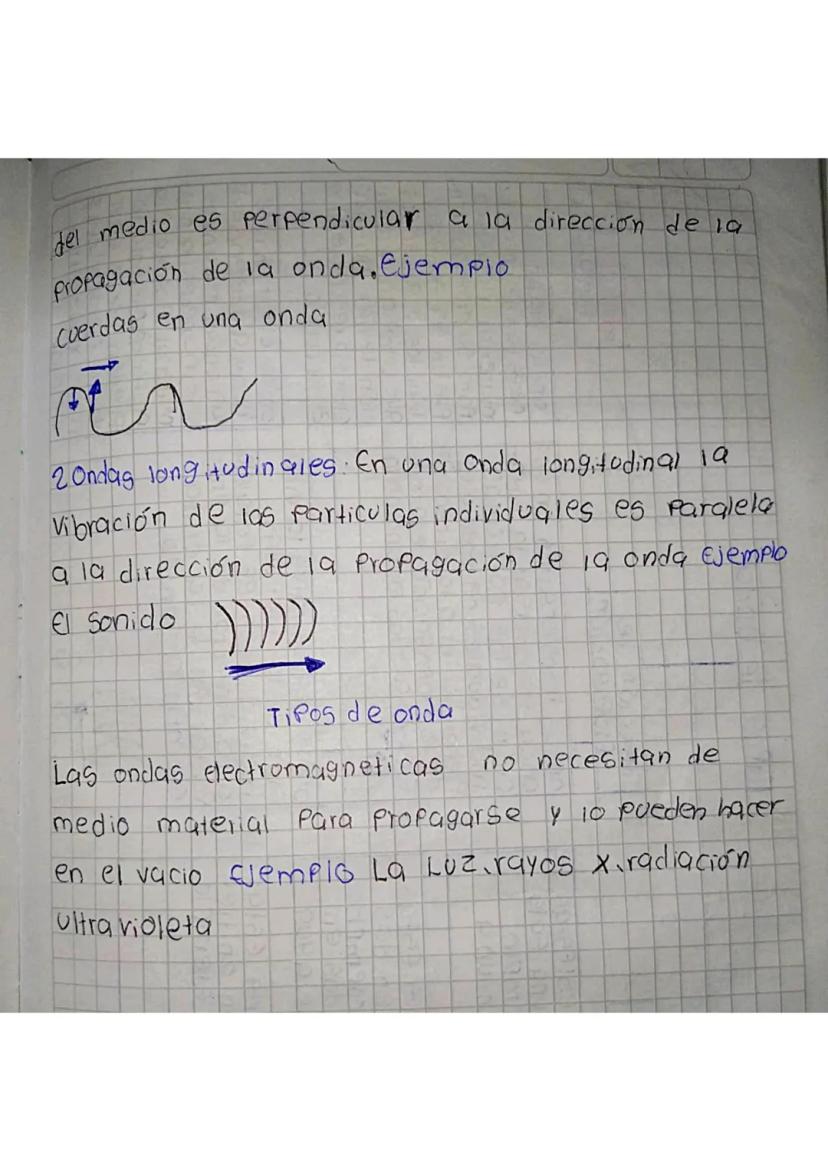 del medio es perpendicular a la dirección de la
propagación de la onda. Ejemplo
cuerdas en una onda
2 Ondas longitudinales: En una onda longitudinal la
vibración de las particulas individuales es paralela
a la dirección de la propagación de la onda Ejemplo
El sonido
Tipos de onda
Las ondas electromagneticas no necesitan de
medio material para propagarse y lo pueden hacer
en el vacio Ejemplo La Luz, rayos x, radiación
ultravioleta